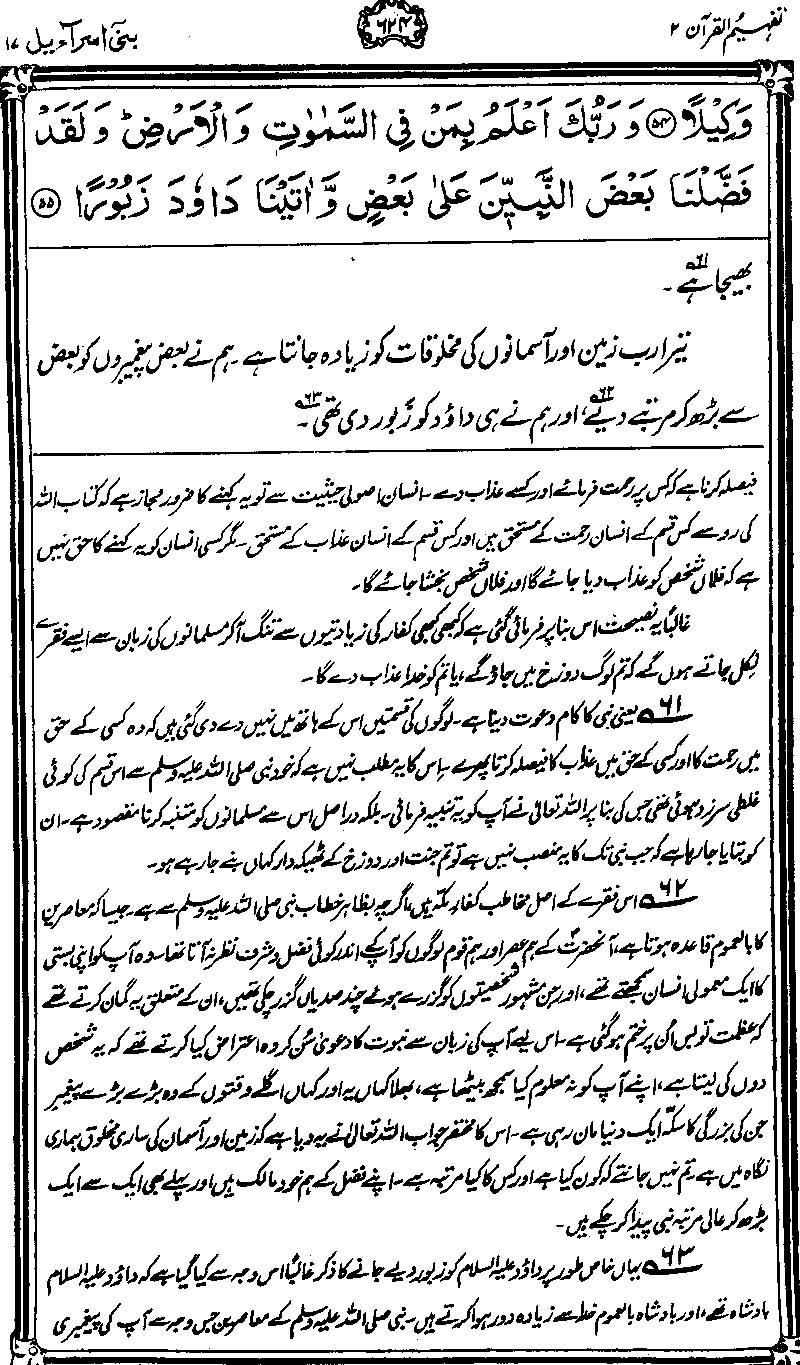 تفہیم القرآن ۲
۶۲۴
بنی اسرآءیل ۱۷
وَكِيْلًا ﴿۵۴﴾ وَ رَبُّكَ اَعْلَمُ بِمَنْ فِي السَّمٰوٰتِ وَ الْاَرْضِ ؕ وَ لَقَدْ
فَضَّلْنَا بَعْضَ النَّبِيّٖنَ عَلٰى بَعْضٍ وَّ اٰتَيْنَا دَاوٗدَ زَبُوْرًا ﴿۵۵﴾
بھیجا ہے۶۱۔
تیرا رب زمین اور آسمانوں کی مخلوقات کو زیادہ جانتا ہے۔ ہم نے بعض پیغمبروں کو بعض
سے بڑھ کر مرتبے دیے۶۲، اور ہم نے ہی داؤد کو زبور دی تھی۶۳۔
فیصلہ کرنا ہے کہ کس پر رحمت فرمائے اور کسے عذاب دے۔ انسان اصولی حیثیت سے تو یہ کہنے کا ضرور مجاز ہے کہ کتاب اللہ
کی رو سے کس قسم کے انسان رحمت کے مستحق ہیں اور کس قسم کے انسان عذاب کے مستحق۔ مگر کسی انسان کو یہ کہنے کا حق نہیں
ہے کہ فلاں شخص کو عذاب دیا جائے گا اور فلاں شخص بخشا جائے گا۔
غالباً یہ نصیحت اس بنا پر فرمائی گئی ہے کہ کبھی کبھی کفار کی زیادتیوں سے تنگ آکر مسلمانوں کی زبان سے ایسے فقرے
نکل جاتے ہوں گے کہ تم لوگ دوزخ میں جاؤ گے، یا تم کو خدا عذاب دے گا۔
۶۱ یعنی نبی کا کام دعوت دینا ہے۔ لوگوں کی قسمتیں اس کے ہاتھ میں نہیں دے دی گئی ہیں کہ وہ کسی کے حق
میں رحمت کا اور کسی کے حق میں عذاب کا فیصلہ کرتا پھرے۔ اس کا یہ مطلب نہیں ہے کہ خود نبی صلی اللہ علیہ وسلم سے اس قسم کی کوئی
غلطی سرزد ہوئی تھی جس کی بنا پر اللہ تعالیٰ نے آپ کو یہ تنبیہ فرمائی۔ بلکہ دراصل اس سے مسلمانوں کو متنبہ کرنا مقصود ہے۔ ان
کو بتایا جا رہا ہے کہ جب نبی تک کا یہ منصب نہیں ہے تو تم جنت اور دوزخ کے ٹھیکہ دار کہاں بنے جا رہے ہو۔
۶۲ اس فقرے کے اصل مخاطب کفار مکہ ہیں، اگرچہ بظاہر خطاب نبی صلی اللہ علیہ وسلم سے ہے۔ جیسا کہ معاصرین
کا بالعموم قاعدہ ہوتا ہے، آنحضرتؐ کے ہم عصر اور ہم قوم لوگوں کو آپ کے اندر کوئی فضل و شرف نظر نہ آتا تھا۔ وہ آپ کو اپنی بستی
کا ایک معمولی انسان سمجھتے تھے، اور جن مشہور شخصیتوں کو گزرے ہوئے چند صدیاں گزر چکی تھیں، ان کے متعلق یہ گمان کرتے تھے
کہ عظمت تو بس اُن پر ختم ہوگئی ہے۔ اس لیے آپ کی زبان سے نبوت کا دعویٰ سُن کر وہ اعتراض کیا کرتے تھے کہ یہ شخص
دوں کی لیتا ہے، اپنے آپ کو نہ معلوم کیا سمجھ بیٹھا ہے، بھلا کہاں یہ اور کہاں اگلے وقتوں کے وہ بڑے بڑے پیغمبر
جن کی بزرگی کا سکہ ایک دنیا مان رہی ہے۔ اس کا مختصر جواب اللہ تعالیٰ نے یہ دیا ہے کہ زمین اور آسمان کی ساری مخلوق ہماری
نگاہ میں ہے۔ تم نہیں جانتے کہ کون کیا ہے اور کس کا کیا مرتبہ ہے۔ اپنے فضل کے ہم خود مالک ہیں اور پہلے بھی ایک سے ایک
بڑھ کر عالی مرتبہ نبی پیدا کر چکے ہیں۔
۶۳ یہاں خاص طور پر داؤد علیہ السلام کو زبور دیے جانے کا ذکر غالباً اس وجہ سے کیا گیا ہے کہ داؤد علیہ السلام
بادشاہ تھے، اور بادشاہ بالعموم خدا سے زیادہ دور ہوا کرتے ہیں۔ نبی صلی اللہ علیہ وسلم کے معاصرین جس وجہ سے آپ کی پیغمبری